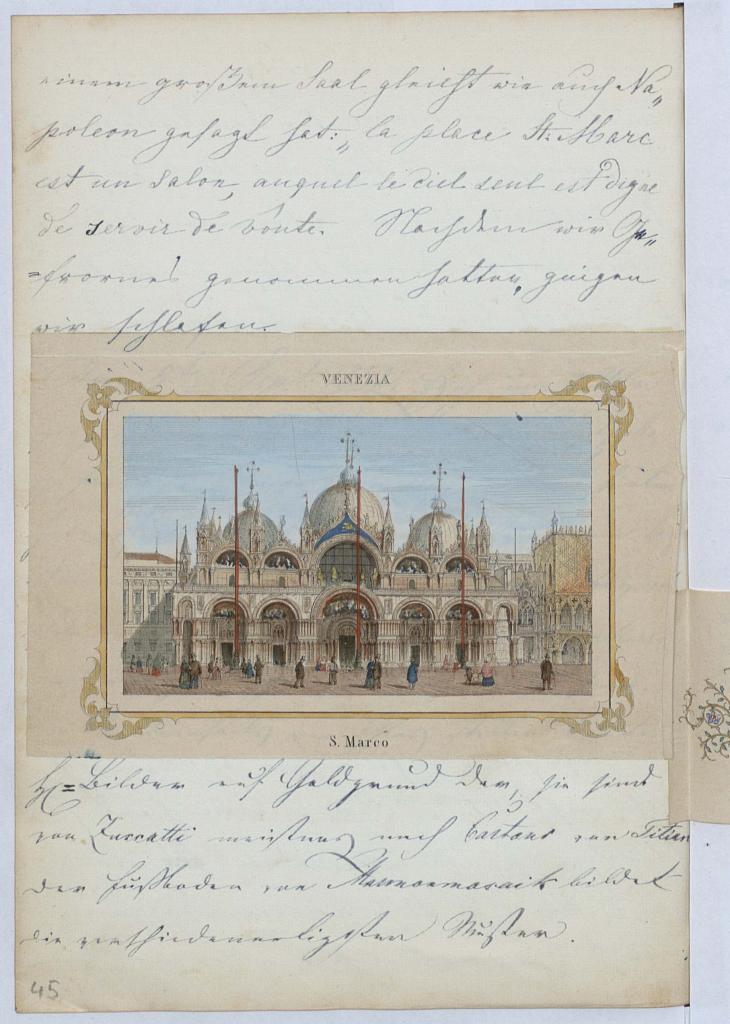 einem großem Saal gleicht wie auch Na„
poleon gesagt hat: „la place St: Marc
est un Salon, auquel le ciel seul est digne
de servir de voute. Nachdem wir Ge„
=frornes genommen hatten, gingen
wir schlafen.
VENEZIA
S. Marco
=Bilder auf Goldgrund dar, sie sind
von Zuccatti meistens nach Cartons von Titian
der Fußboden von Marmormosaik bildet
die verschiedenartigsten Muster.
45